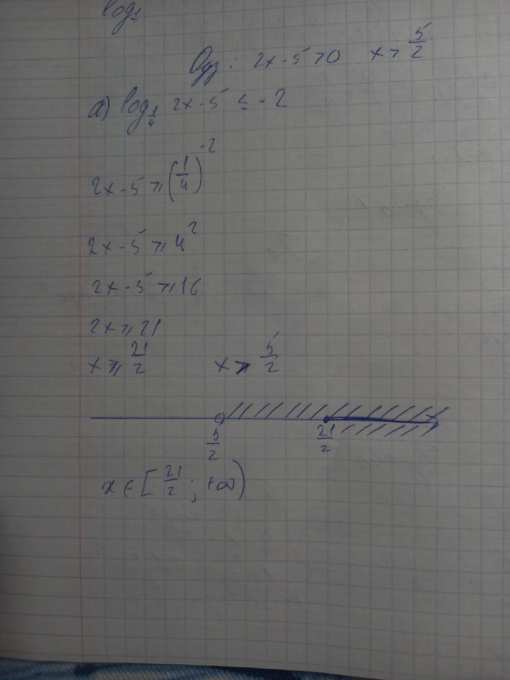 log₁
Одз: 2x-5>0 x > 5/2
а) log_{1/4} 2x-5 ≤ -2
2x-5 ⩾ (1/4)^{-2}
2x-5 ⩾ 4²
2x-5 ⩾ 16
2x ⩾ 21
x ⩾ 21/2 x > 5/2
5/2 21/2 x
x ∈ [21/2 ; +∞)